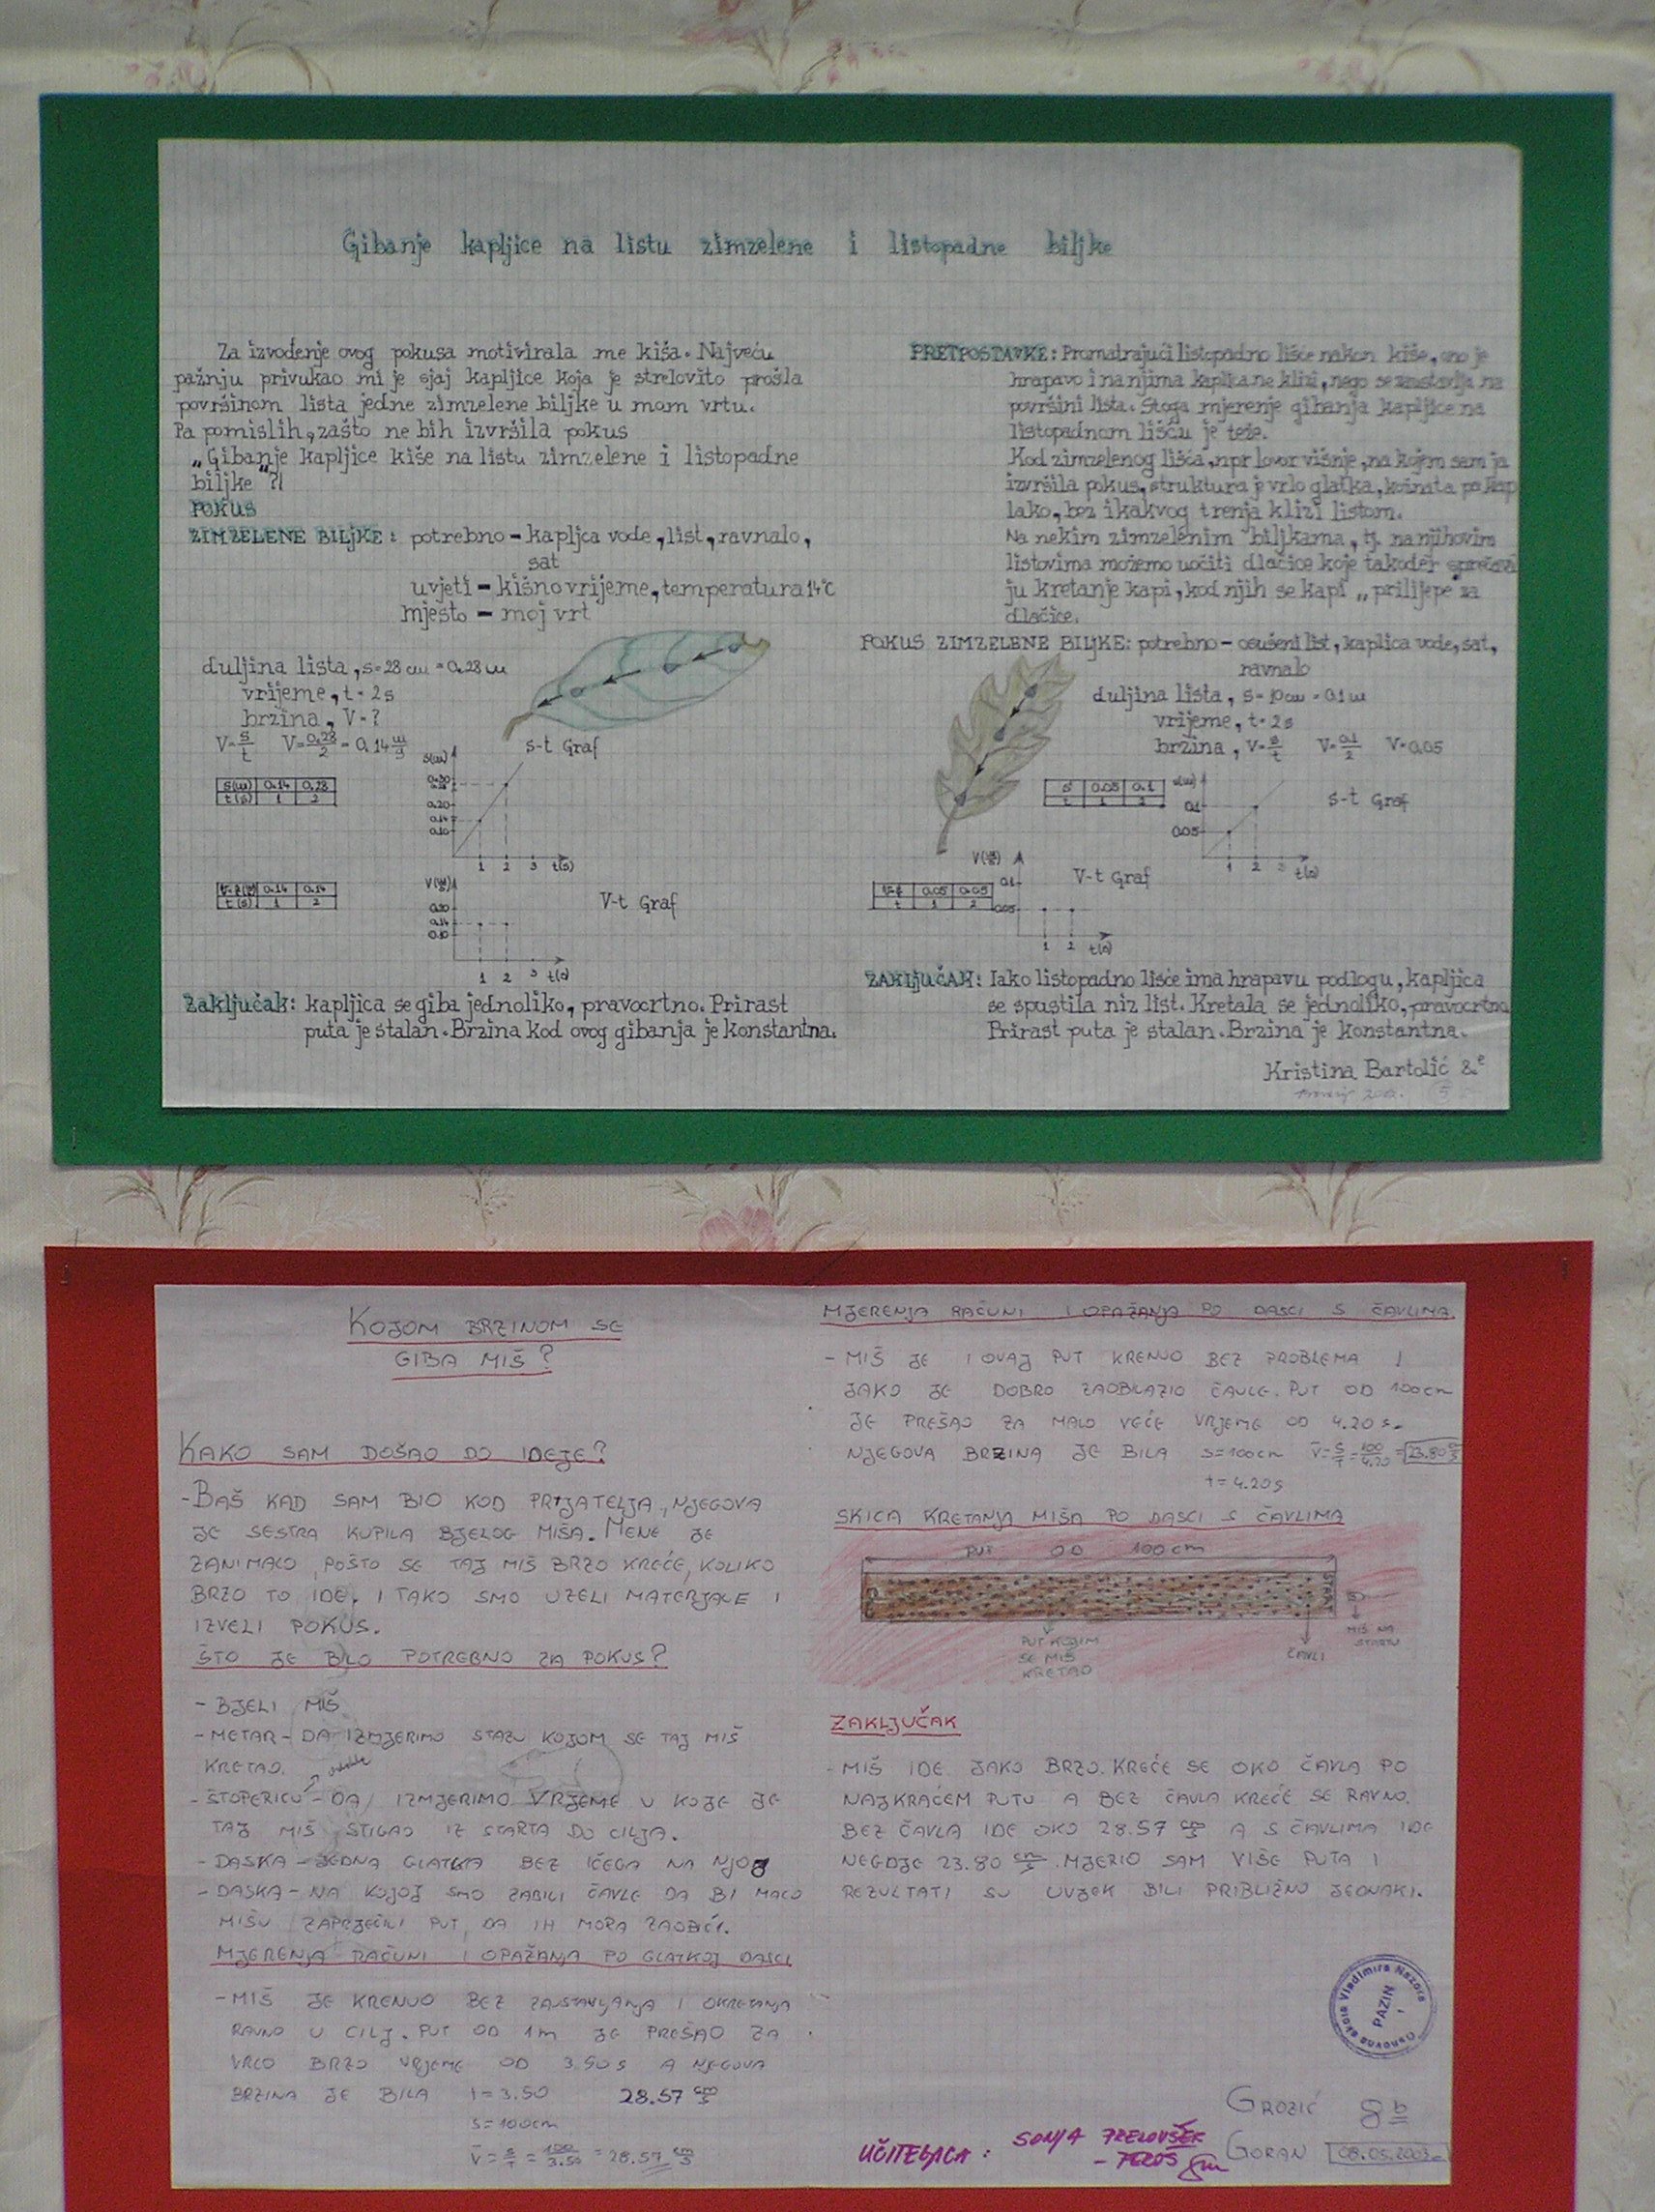 Gibanje kapljice na listu zimzelene i listopadne biljke
Za izvođenje ovog pokusa motivirala me kiša. Najveću
pažnju privukao mi je sjaj kapljice koja je strelovito prošla
površinom lista jedne zimzelene biljke u mom vrtu.
Pa pomislih, zašto ne bih izvršila pokus
„Gibanje kapljice kiše na listu zimzelene i listopadne
biljke“?!
POKUS
ZIMZELENE BILJKE: potrebno - kapljca vode, list, ravnalo,
sat
uvjeti - kišno vrijeme, temperatura 14°C
mjesto - moj vrt
duljina lista, s=28 cm = 0.28 m
vrijeme, t = 2s
brzina, V = ?
V=s/t V=0.28/2 = 0.14 m/s
s-t Graf
s(m) 0.14 0.28
t(s) 1 2
s(m)
0.30
0.28
0.20
0.14
0.10
1 2 3 t(s)
0.14 0.14
t(s) 1 2
V(m/s)
0.20
0.14
0.10
1 2 3 t(s)
V-t Graf
Zaključak: kapljica se giba jednoliko, pravocrtno. Prirast
puta je stalan. Brzina kod ovog gibanja je konstantna.
PRETPOSTAVKE: Promatrajući listopadno lišće nakon kiše, ono je
hrapavo i na njima kaplica ne klizi, nego se zaustavlja na
površini lista. Stoga mjerenje gibanja kapljice na
listopadnom lišću je teže.
Kod zimzelenog lišća, npr lovor višnje, na kojem sam ja
izvršila pokus, struktura je vrlo glatka, kožnata pa kap
lako, bez ikakvog trenja klizi listom.
Na nekim zimzelenim biljkama, tj. na njihovim
listovima možemo uočiti dlačice koje također sprečava
ju kretanje kapi, kod njih se kapi „prilijepe za
dlačice.
POKUS ZIMZELENE BILJKE: potrebno - osušeni list, kaplica vode, sat,
ravnalo
duljina lista, s=10cm = 0.1 m
vrijeme, t=2s
brzina, V=s/t V=0.1/2 V=0.05
s 0.05 0.1
t 1 2
s(m)
0.1
0.05
1 2 3 t(s)
s-t Graf
0.05 0.05
t 1 2
V(m/s)
0.1
0.05
1 2 t(s)
V-t Graf
ZAKLJUČAK: Iako listopadno lišće ima hrapavu podlogu, kapljica
se spustila niz list. Kretala se jednoliko, pravocrtno
Prirast puta je stalan. Brzina je konstantna.
Kristina Bartolić 8.e
KOJOM BRZINOM SE
GIBA MIŠ?
KAKO SAM DOŠAO DO IDEJE?
-BAŠ KAD SAM BIO KOD PRIJATELJA, NJEGOVA
JE SESTRA KUPILA BJELOG MIŠA. MENE JE
ZANIMALO, POŠTO SE TAJ MIŠ BRZO KREĆE, KOLIKO
BRZO TO IDE. I TAKO SMO UZELI MATERJALE I
IZVELI POKUS.
ŠTO JE BILO POTREBNO ZA POKUS?
- BJELI MIŠ
- METAR - DA IZMJERIMO STAZU KOJOM SE TAJ MIŠ
KRETAO.
- ŠTOPERICU - DA IZMJERIMO VRJEME U KOJE JE
TAJ MIŠ STIGAO IZ STARTA DO CILJA.
- DASKA - JEDNA GLATKA BEZ IČEGA NA NJOJ
- DASKA - NA KOJOJ SMO ZABILI ČAVLE DA BI MALO
MIŠU ZAPRJEČILI PUT, DA IH MORA ZAOBIĆI.
MJERENJA RAČUNI I OPAŽANJA PO GLATKOJ DASCI
- MIŠ JE KRENUO BEZ ZAUSTAVLJANJA I OKRETANJA
RAVNO U CILJ. PUT OD 1m JE PREŠAO ZA
VRLO BRZO VRJEME OD 3.50s A NJEGOVA
BRZINA JE BILA t=3.50 28.57 cm/s
s=100cm
v̄=s/t=100/3.50=28.57 cm/s
MJERENJA RAČUNI I OPAŽANJA PO DASCI S ČAVLIMA.
- MIŠ JE I OVAJ PUT KRENUO BEZ PROBLEMA I
JAKO JE DOBRO ZAOBILAZIO ČAVLE. PUT OD 100cm
JE PREŠAO ZA MALO VEĆE VRJEME OD 4.20 s.
NJEGOVA BRZINA JE BILA s=100cm v̄=s/t=100/4.20=23.80 cm/s
t=4.20s
SKICA KRETANJA MIŠA PO DASCI S ČAVLIMA
PUT OD 100cm
CILJ
START
PUT KOJIM
SE MIŠ
KRETAO
ČAVLI
MIŠ NA
STARTU
ZAKLJUČAK
- MIŠ IDE JAKO BRZO. KREĆE SE OKO ČAVLA PO
NAJKRAĆEM PUTU A BEZ ČAVLA KREĆE SE RAVNO.
BEZ ČAVLA IDE OKO 28.57 cm/s A S ČAVLIMA IDE
NEGDJE 23.80 cm/s. MJERIO SAM VIŠE PUTA I
REZULTATI SU UVJEK BILI PRIBLIŽNO JEDNAKI.
Osnovna škola Vladimira Nazora
PAZIN
1
GROZIĆ 8b
GORAN 08.05.2003.
UČITELJICA: SONJA